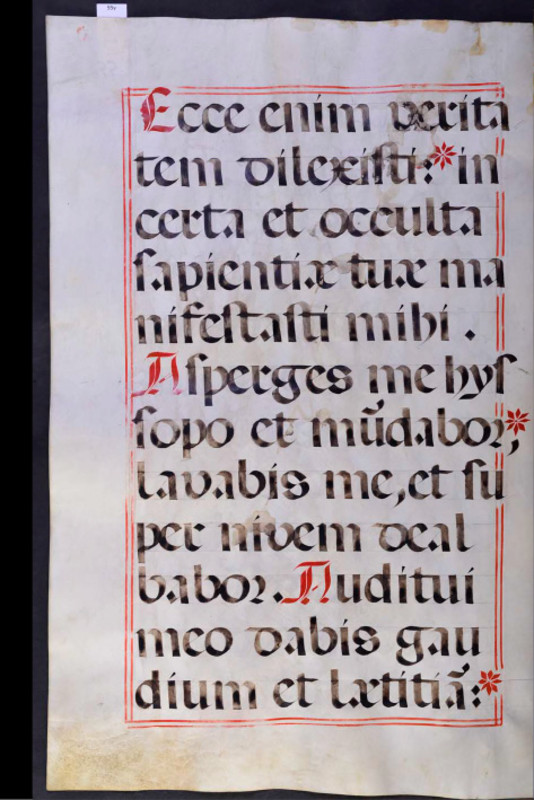 Ecce enim verita
tem dilexisti:* in
certa et occulta
sapientiæ tuæ ma
nifestasti mihi.
Asperges me hys
sopo et mũdabor;*
lavabis me, et su
per nivem deal
babor. Auditui
meo dabis gau
dium et lætitiã:*